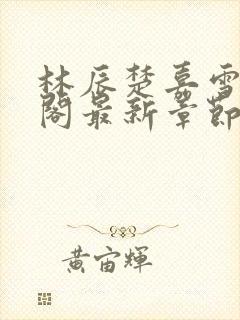 林辰楚嘉雪
阁最新章节
黄宙辉